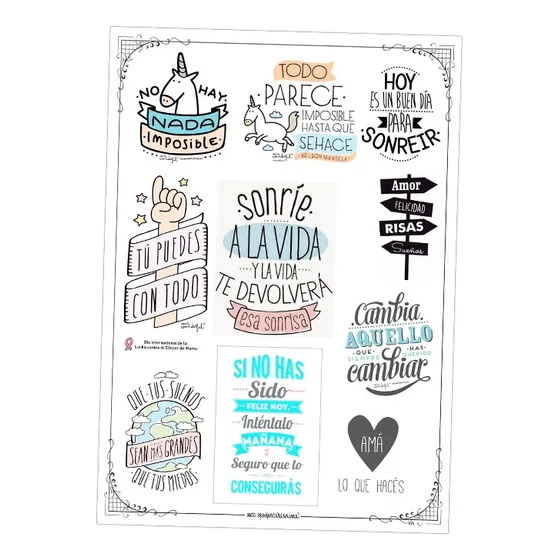 NO HAY
NADA
IMPOSIBLE
TODO
PARECE
IMPOSIBLE
HASTA QUE
SE HACE
NELSON MANDELA
HOY
ES UN BUEN DÍA
PARA
SONREIR
TÚ PUEDES
CON TODO
Día internacional de la
Lucha contra el Cáncer de Mama
Sonríe
A LA VIDA
Y LA VIDA
TE DEVOLVERÁ
esa sonrisa
Amor
FELICIDAD
RISAS
Sueños
Cambia
AQUELLO
QUE HAS
SIEMPRE QUERIDO
cambiar
QUE TUS SUEÑOS
SEAN MÁS GRANDES
QUE TUS MIEDOS
SI NO HAS
Sido
FELIZ HOY,
Inténtalo
MAÑANA
Seguro que lo
CONSEGUIRÁS
AMÁ
LO QUE HACÉS